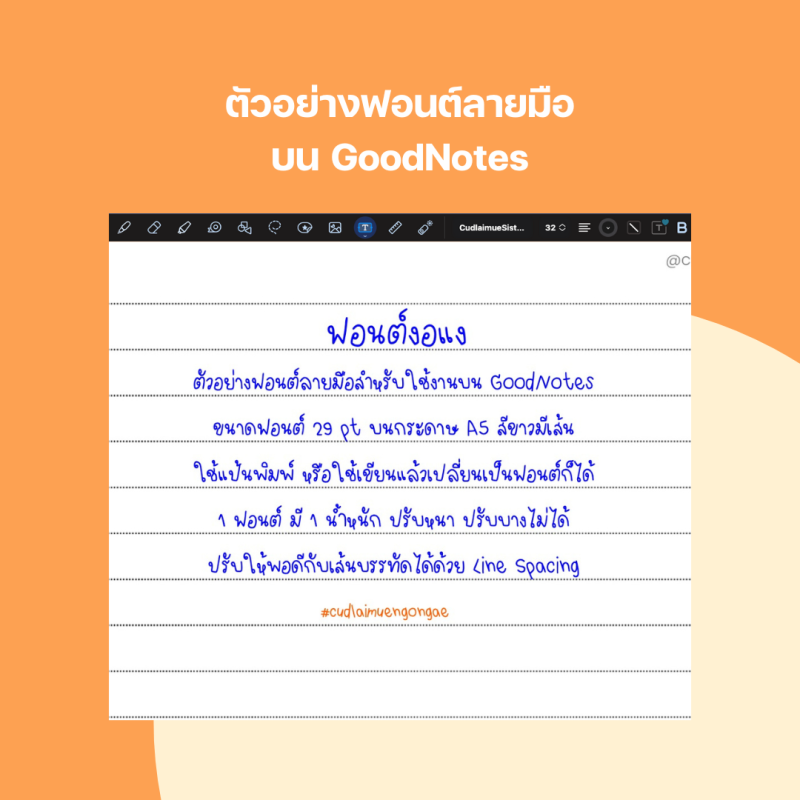 ตัวอย่างฟอนต์ลายมือ
บน GoodNotes
CudlaimueSist... 32 B
@c
ฟอนต์งอแง
ตัวอย่างฟอนต์ลายมือสำหรับใช้งานบน GoodNotes
ขนาดฟอนต์ 29 pt บนกระดาษ A5 สีขาวมีเส้น
ใช้แป้นพิมพ์ หรือใช้เขียนแล้วเปลี่ยนเป็นฟอนต์ก็ได้
1 ฟอนต์ มี 1 น้ำหนัก ปรับหนา ปรับบางไม่ได้
ปรับให้พอดีกับเส้นบรรทัดได้ด้วย Line Spacing
#cudlaimuengongae